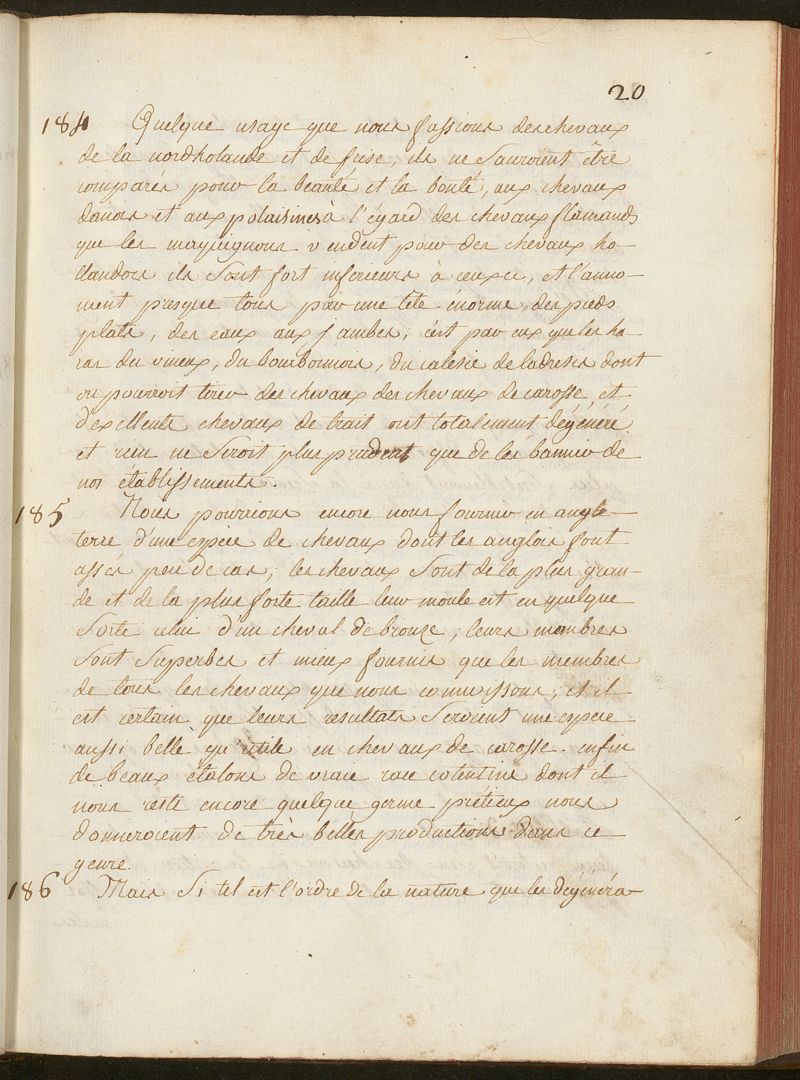 20
184 Quelque usage que nous fassions des chevaux
de la nordholande et de frise, ils ne sauroient être
comparés pour la beauté et la bonté, aux chevaux
danois et aux polaisines à l'égard des chevaux flamands
que les maquignons vendent pour des chevaux ho-
llandois ils sont fort inferieurs à ceux ci, et l'anno-
ncent presque tous par une tête énorme, des pieds
plats, des eaux aux jambes; c'est par eux que les ha
ras du vimeux, du bourbonnois, du calesie de ladresis dont
on pourroit tirer des chevaux des chevaux de carosse, et
d'excellents chevaux de trait ont totalement dégénéré
et rien ne seroit plus prudent que de les bannir de
nos établissements.
185 Nous pourrions encore nous fournir en angle-
terre d'une espèce de chevaux dont les anglois font
assés peu de cas; les chevaux sont de la plus gran-
de et de la plus forte taille leur moule est en quelque
sorte celui d'un cheval de bronze; leurs membres
sont superbes et mieux fournis que les membres
de tous les chevaux que nous connoissons; et il
est certain que leurs resultats seroient une espèce
aussi belle qu'utile en chevaux de carosse. enfin
de beaux étalons de vraie race cotentine dont il
nous reste encore quelque germe prétieux nous
donneroient de très belles productions dans ce
genre.
186 Mais si tel est l'ordre de la nature que les dégénéra-